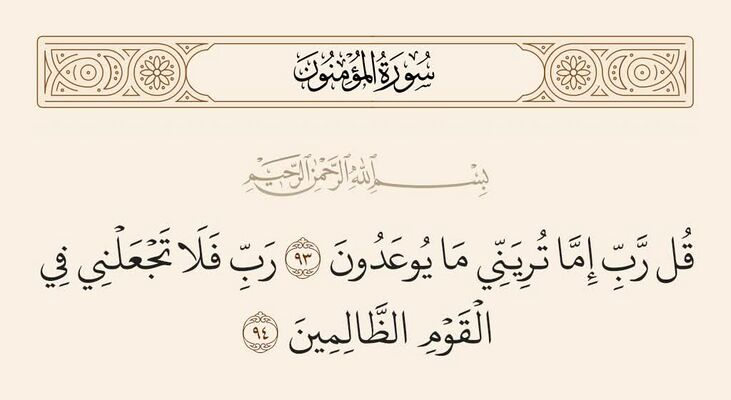 سُورَةُ المُؤْمِنُونَ
بِسْمِ اللَّهِ الرَّحْمَٰنِ الرَّحِيمِ
قُل رَّبِّ إِمَّا تُرِيَنِّي مَا يُوعَدُونَ ٩٣ رَبِّ فَلَا تَجْعَلْنِي فِي
الْقَوْمِ الظَّالِمِينَ ٩٤